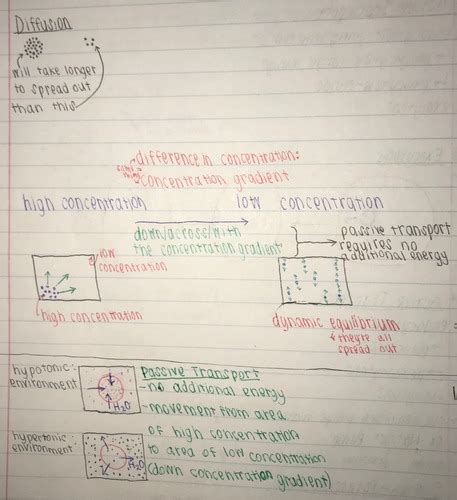 Diffusion
will take longer
to spread out
than this
difference in concentration:
same thing
concentration gradient
high concentration
low concentration
down/across/with
the concentration gradient
passive transport
requires no
additional energy
low
concentration
high concentration
dynamic equilibrium
they're all
spread out
hypotonic:
environment
H2O
Passive Transport
-no additional energy
-movement from area
of high concentration
to area of low concentration
(down concentration gradient)
hypertonic
environment
H2O